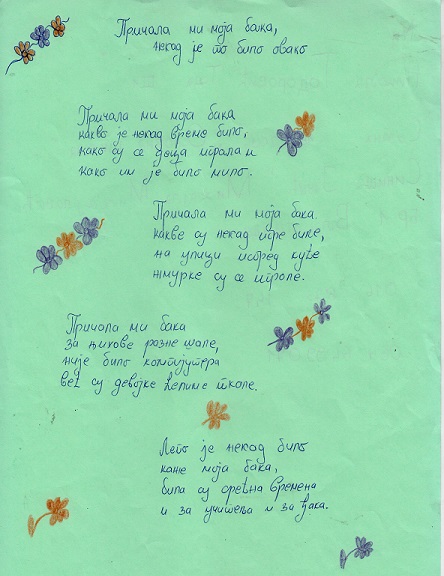 Причала ми моја бака,
некад је то било овако
Причала ми моја бака
какво је некад време било,
како су се деца играла и
како им је било мило.
Причала ми моја бака
какве су некад игре биле,
на улици испред куће
жмурке су се играле.
Причала ми бака
за њихове разне шале,
није било компјутера
већ су девојке клепиле школе.
Лепо је некад било
каже моја бака,
била су срећна времена
и за учитеља и за ђака.